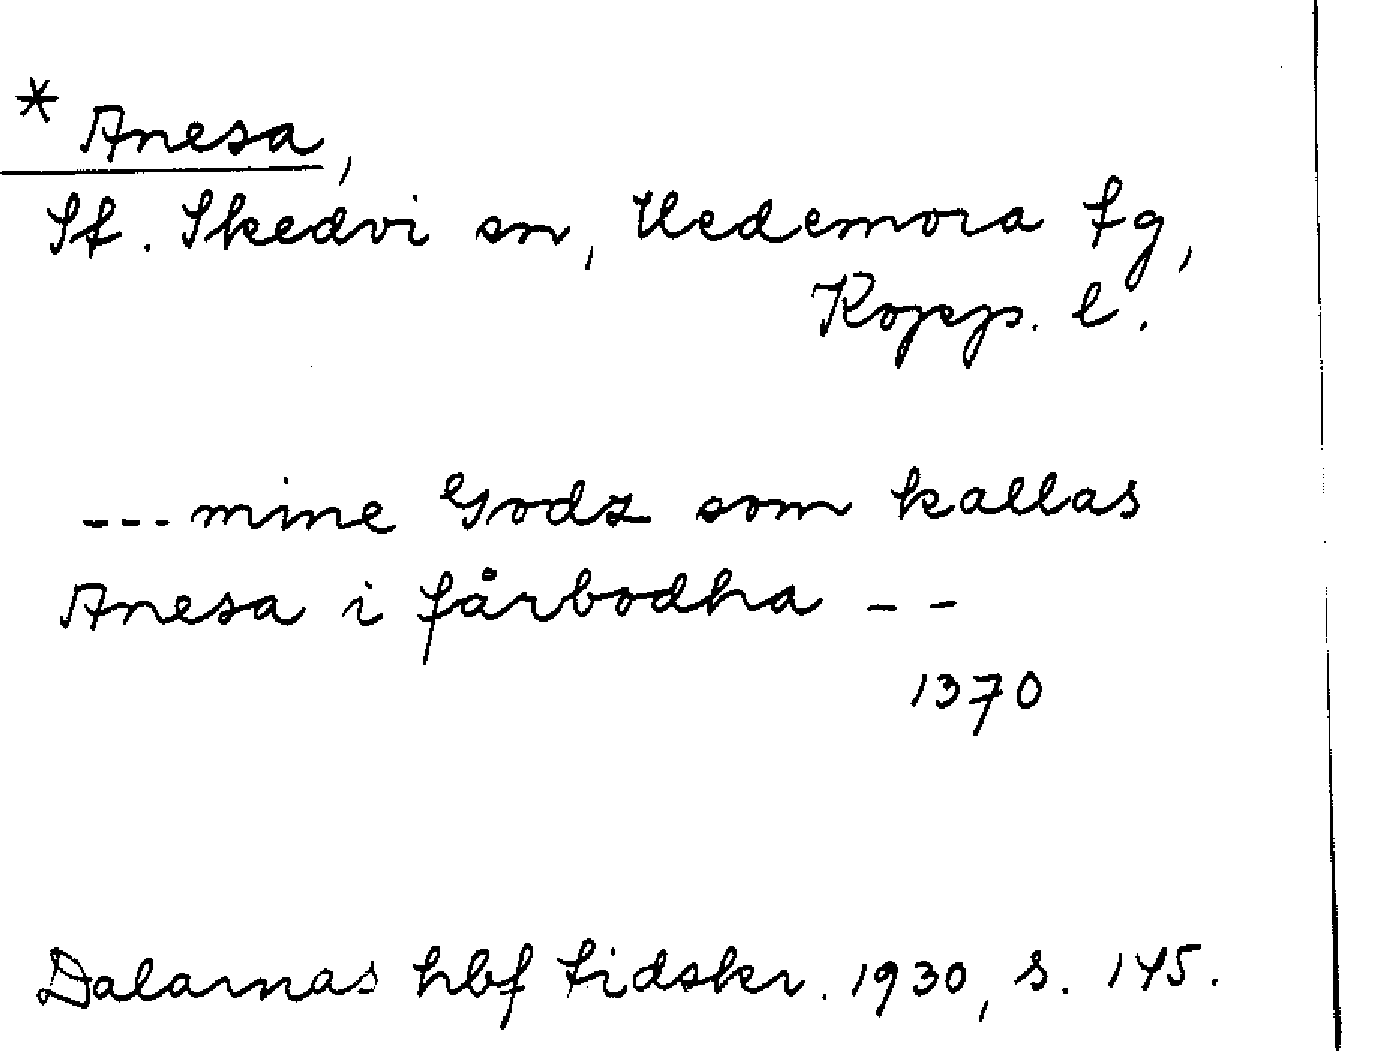 * Anesa,
St. Skedvi sn, Hedemora tg,
Kopp. l.
---mine Godz som kallas
Anesa i fårbodha --
1370
Dalarnas hbf tidskr. 1930, s. 145.